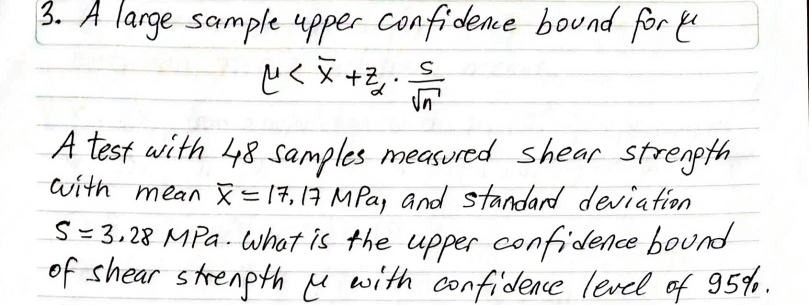 3. A large sample upper confidence bound for μ
μ < x̄ + z_α · s/√n
A test with 48 samples measured shear strength
with mean x̄ = 17,17 MPa, and standard deviation
S = 3.28 MPa. What is the upper confidence bound
of shear strength μ with confidence level of 95%.